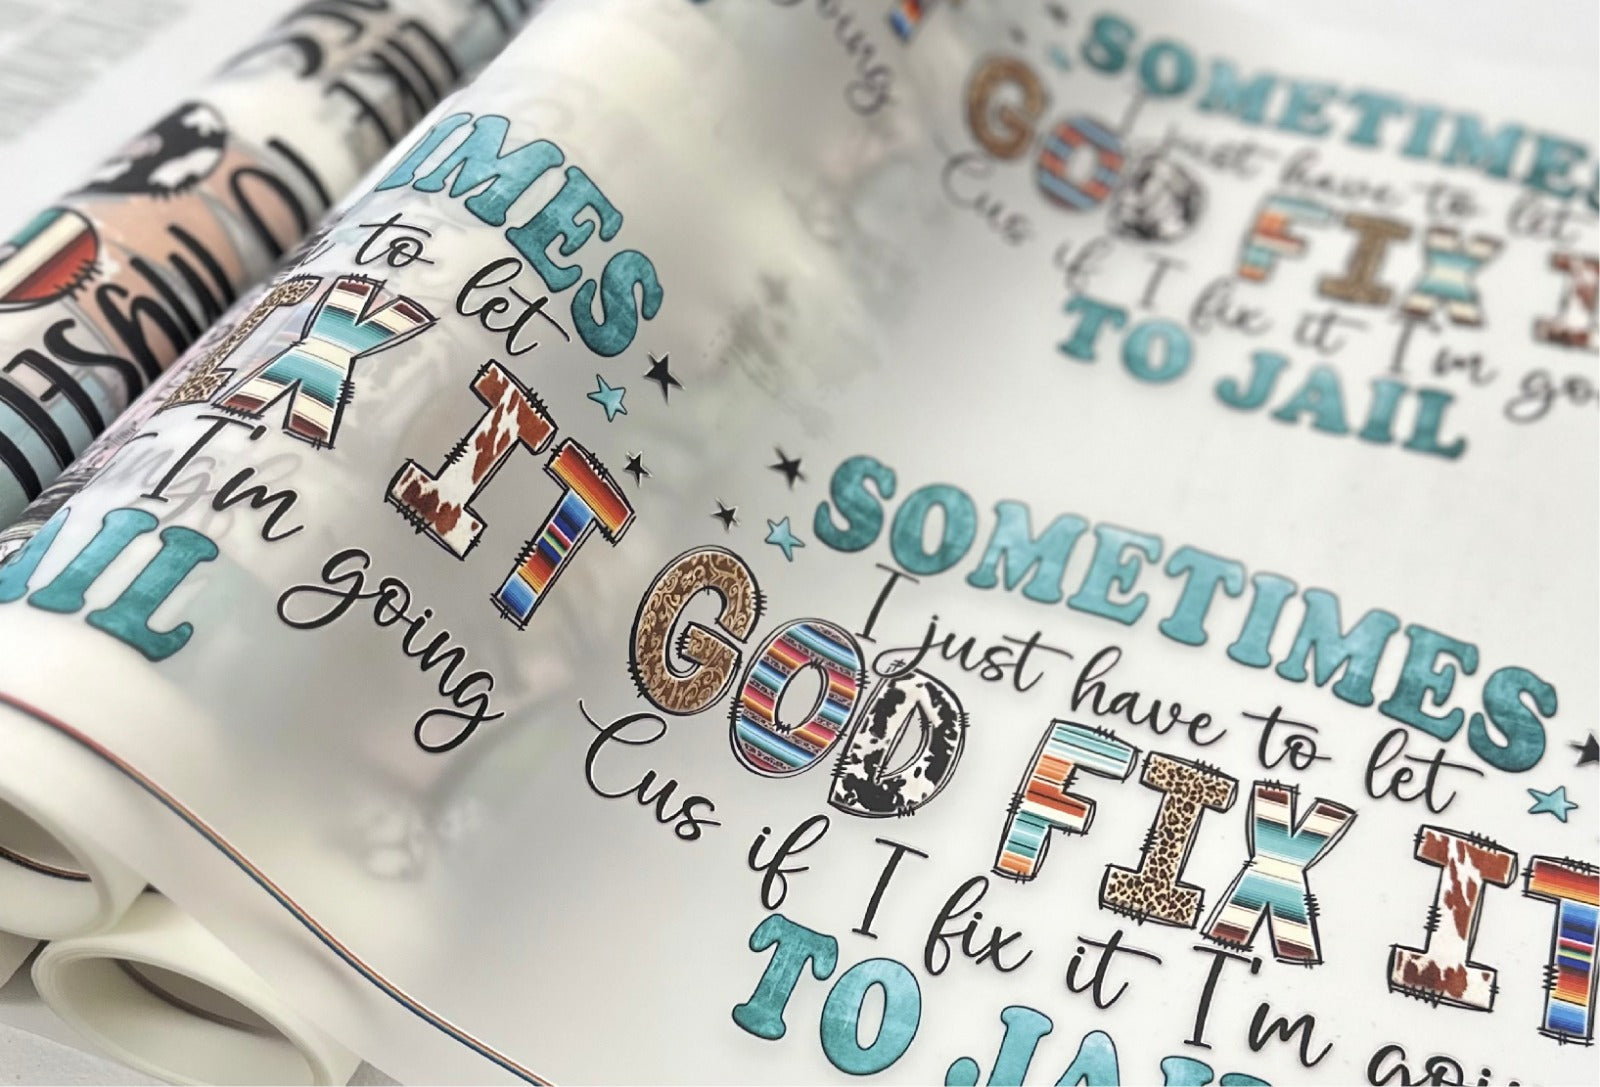 IMES
to let
IX IT
I'm going
AIL
SOMETIMES
I just have to let
GOD FIX IT
Cus if I fix it I'm goi
TO JAI
going
IT
SOMETIMES
I just have to let
GOD FIX I
Cus if I fix it I'm go
TO JAIL